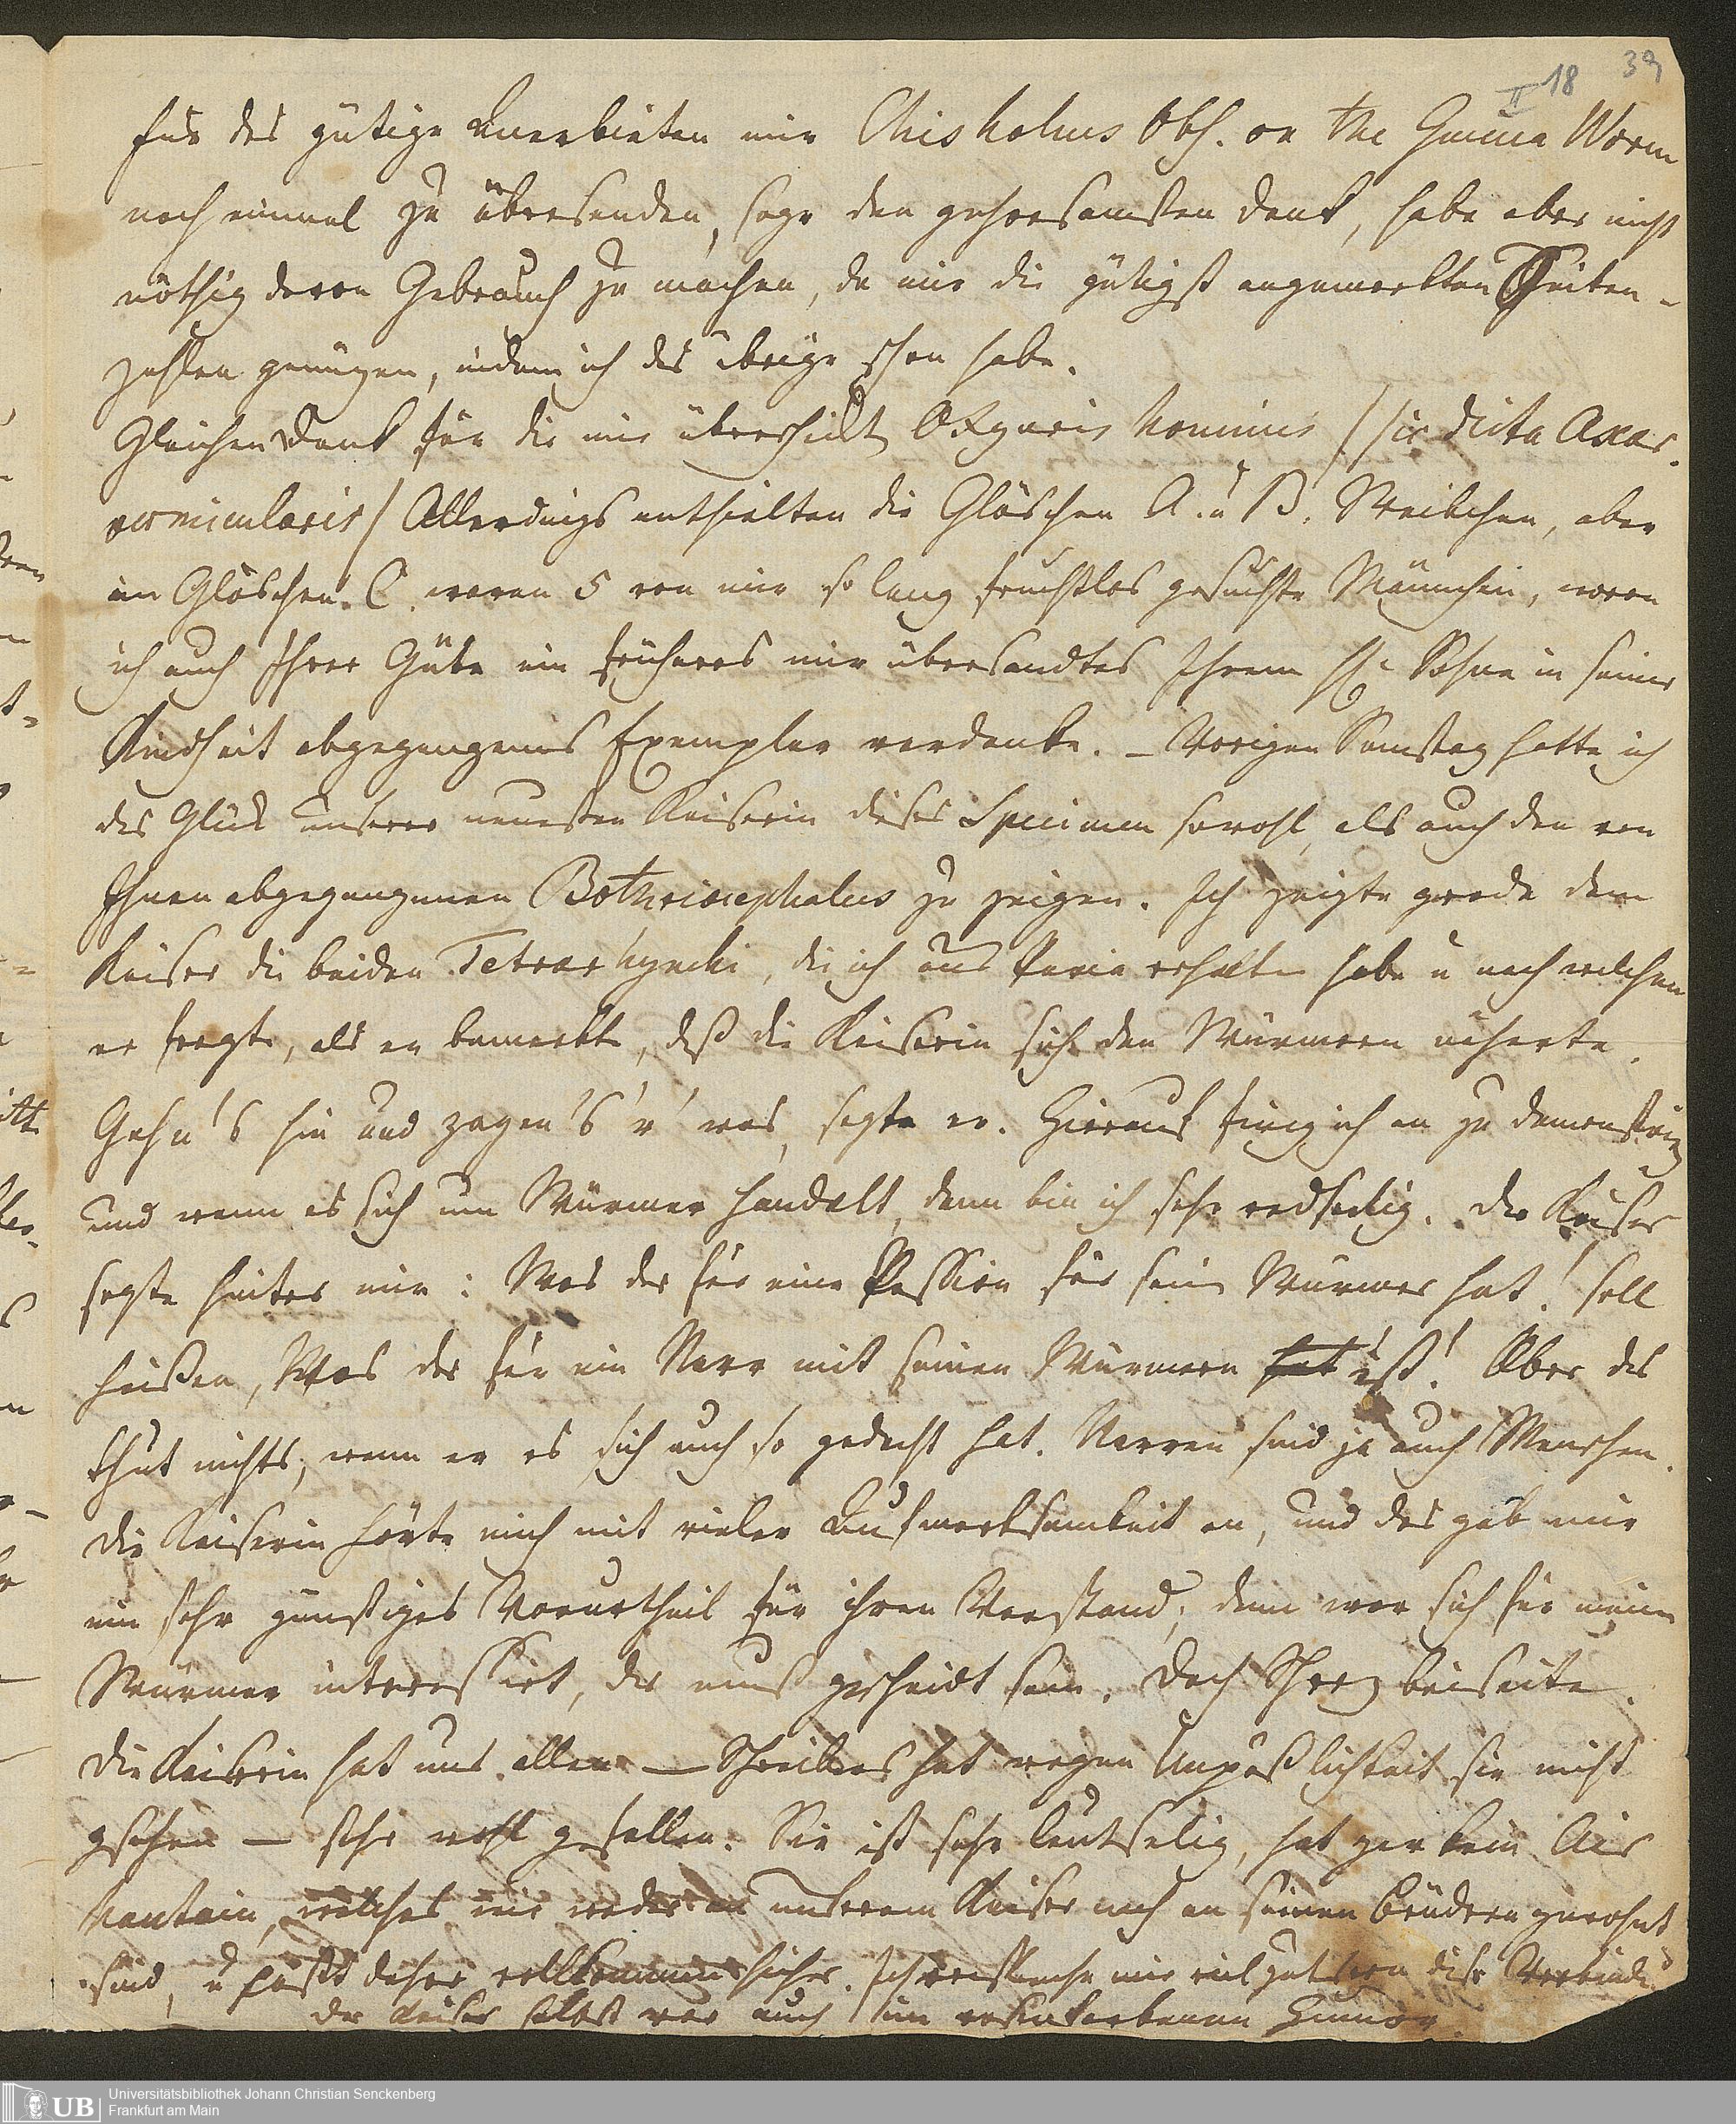 39
II 18
Für das gütige Anerbieten mir Chisholms Obs. on the Guinea Worm
noch einmal zu übersenden, sage den gehorsamsten Dank, habe aber nicht
nöthig davon Gebrauch zu machen, da mir die gütigst angemerkten Seiten-
zahlen genügen, indem ich das übrige schon habe.
Gleichen Dank für die mir überschickt Oxyuris hominis /sic dicta Ascar.
vermicularis/ Allerdings enthielten die Gläschen A. u B. Weibchen, aber
im Gläschen C. waren 5 von mir so lang fruchtlos gesuchte Männchen, wovon
ich auch Ihrer Güte ein früheres mir übersandtes Ihrem H. Sohne in seiner
Kindheit abgegangenes Exemplar verdanke. – Vorigen Samstag hatte ich
das Glück unserer neuesten Kaiserin dieses Specimen sowohl, als auch den von
Ihnen abgegangenen Bothriocephalus zu zeigen. Ich zeigte grade dem
Kaiser die beiden Tetrarhynchi, die ich aus Pavia erhalten habe u nach welchen
er fragte, als er bemerkte, daß die Kaiserin sich den Würmern näherte.
Gehn's hin und zagen's 'r' was, sagte er. Hierauf fing ich an zu demonstrirn
und wenn es sich um Würmer handelt, dann bin ich sehr redselig. Der Kaiser
sagte hinter mir: Was der für eine Passion für seine Würmer hat! soll
heißen, Was der für ein Narr mit seinen Würmern hat ist! Aber das
thut nichts, wenn er es sich auch so gedacht hat. Narren sind ja auch Menschen.
Die Kaiserin hörte mich mit vieler Aufmerksamkeit an, und das gab mir
ein sehr günstiges Vorurtheil für ihren Verstand; denn wer sich für meine
Würmer interessirt, der muß gescheidt sein. Doch Scherz beiseite.
Die Kaiserin hat uns allen — Schreibers hat wegen Unpäßlichkeit sie nicht
gesehen — sehr wohl gefallen. Sie ist sehr leutselig, hat gar kein Air
hautain, welches wir weder an unserem Kaiser noch an seinen Brüdern gewohnt
sind, u paßt daher vollkommen hieher. Ich verspreche mir viel gutes von dieser Verbindg
Der Kaiser selbst war auch im rosenfarbenen Humor.
UB
Universitätsbibliothek Johann Christian Senckenberg
Frankfurt am Main